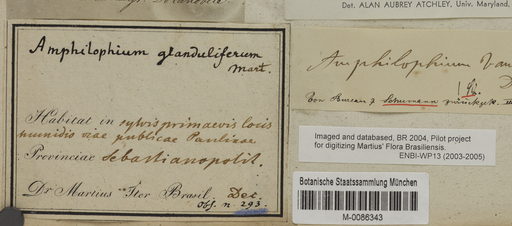 Det. ALAN AUBREY ATCHLEY, Univ. Maryland.
Amphilophium glanduliferum
Mart.
Habitat in sylvis primaevis locis
humidis viae publicae Paulinae
Provinciae Sebastianopolit.
Dr. Martius Iter Brasil. Dec.
Obs. n. 293.
Amphilophium
Von Bureau & Schumann
Imaged and databased, BR 2004, Pilot project
for digitizing Martius' Flora Brasiliensis.
ENBI-WP13 (2003-2005)
Botanische Staatssammlung München
M-0086343